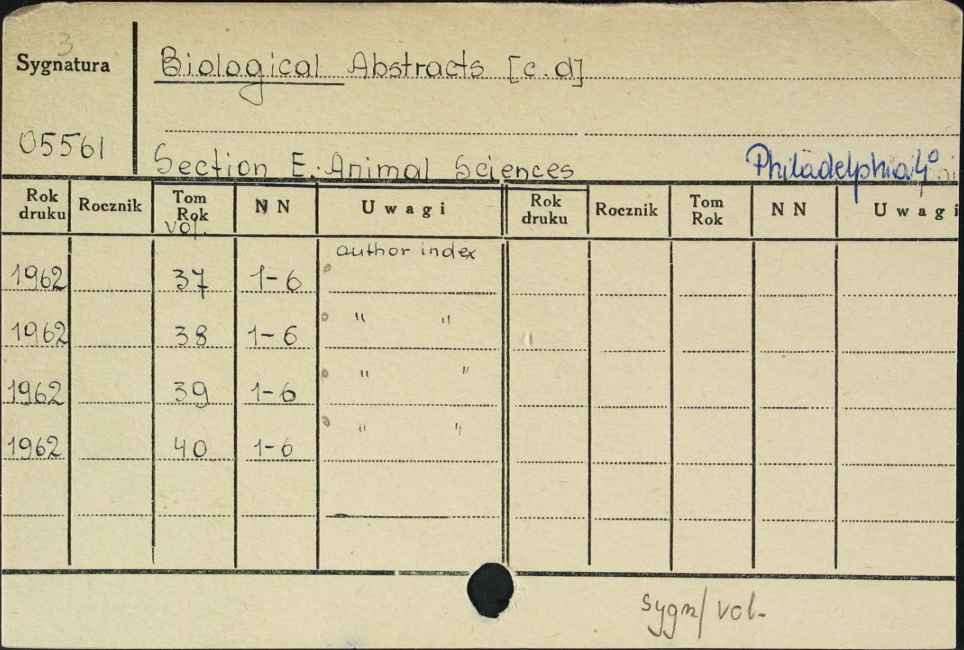 3
Sygnatura
Biological Abstracts [c.d]
05561
Section E. Animal Sciences Philadelphia 4°
Rok druku Rocznik Tom Rok vol. NN Uwagi Rok druku Rocznik Tom Rok NN Uwagi
author index
1962 37 1-6
1962 38 1-6 " "
1962 39 1-6 " "
1962 40 1-6 " "
sygn/vol.